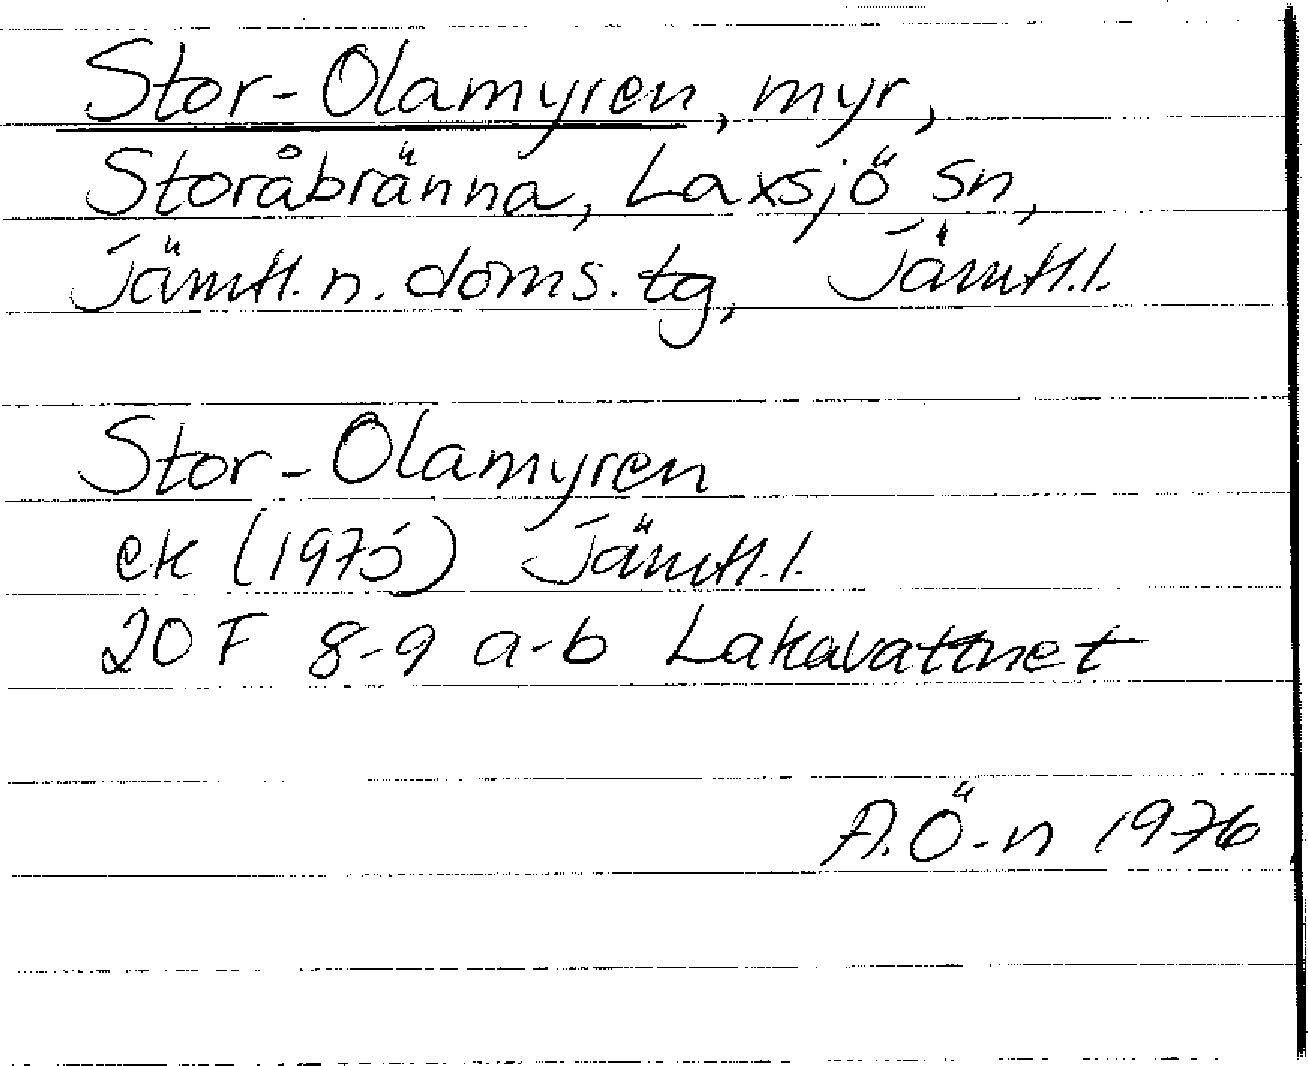 Stor-Olamyren, myr,
Storåbränna, Laxsjö sn,
Jämtl. n. doms. tg, Jämtl. l.
Stor-Olamyren
ek (1975) Jämtl. l.
20 F 8-9 a-b Lakavattnet
A. Ö-n 1976